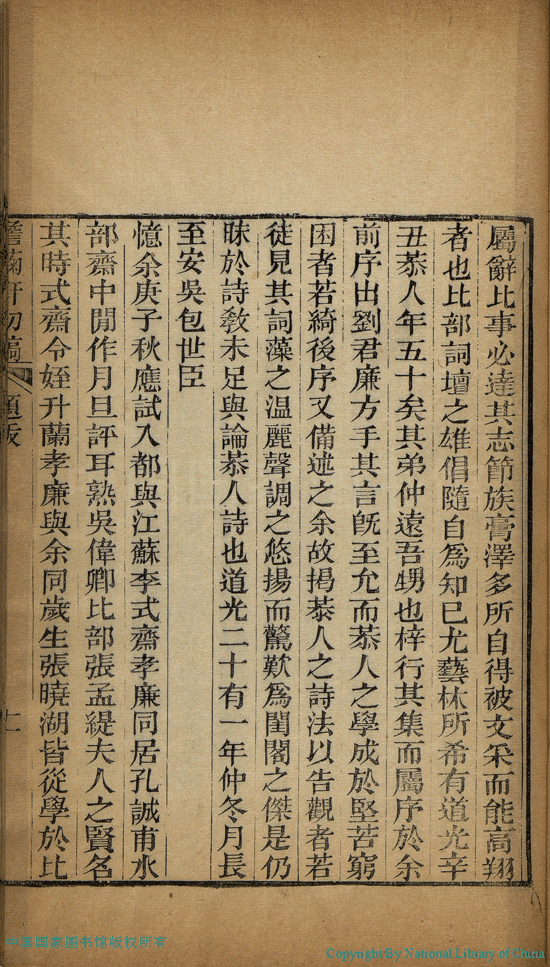 屬辭比事必達其志節族膏澤多所自得被文采而能高翔
者也比部詞壇之雄倡隨自為知已尤藝林所希有道光辛
丑恭人年五十矣其弟仲遠吾甥也梓行其集而屬序於余
前序出劉君廉方手其言旣至允而恭人之學成於堅苦窮
困者若綺後序又備述之余故揭恭人之詩法以告觀者若
徒見其詞藻之温麗聲調之悠揚而驚歎爲閨閣之傑是仍
昧於詩敎未足與論恭人詩也道光二十有一年仲冬月長
至安吳包世臣
憶余庚子秋應試入都與江蘇李式齋孝廉同居孔誠甫水
部齋中閒作月旦評耳熟吳偉卿比部張孟緹夫人之賢名
其時式齋令姪升蘭孝廉與余同歲生張曉湖皆從學於比
澹螠軒初稿 題跋
中國國家图书馆版权所有
Copyright By National Library of China